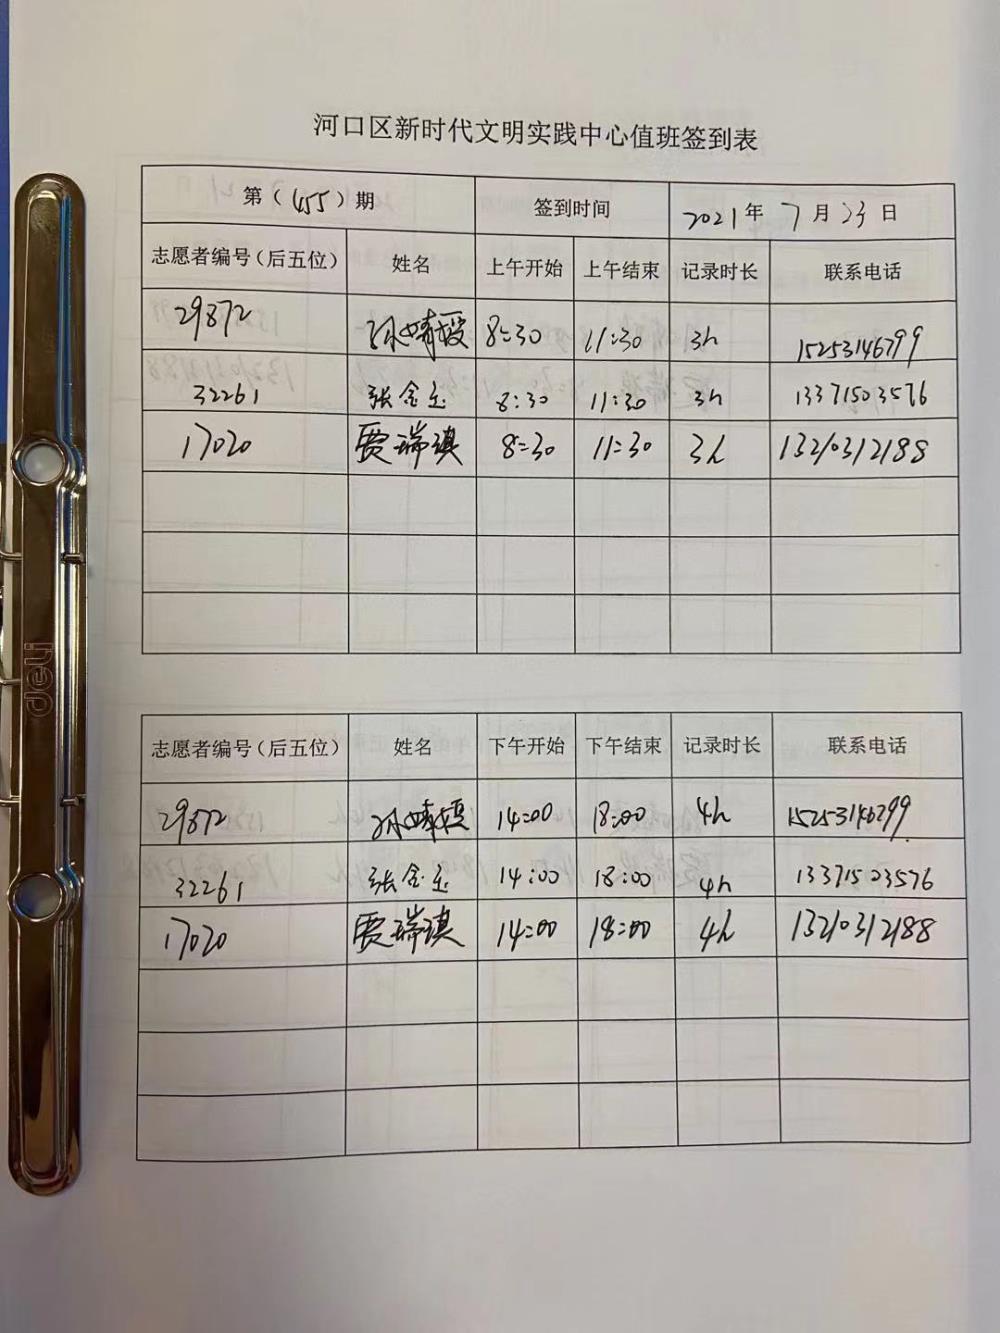 河口区新时代文明实践中心值班签到表
第（455）期 签到时间 2021年 7月23日
志愿者编号（后五位） 姓名 上午开始 上午结束 记录时长 联系电话
29872 孙婧媛 8:30 11:30 3h 15253146799
32261 张金玉 8:30 11:30 3h 13371503576
17020 贾瑞琪 8:30 11:30 3h 13210312188
志愿者编号（后五位） 姓名 下午开始 下午结束 记录时长 联系电话
29872 孙婧媛 14:00 18:00 4h 15253146799
32261 张金玉 14:00 18:00 4h 13371503576
17020 贾瑞琪 14:00 18:00 4h 13210312188
deli